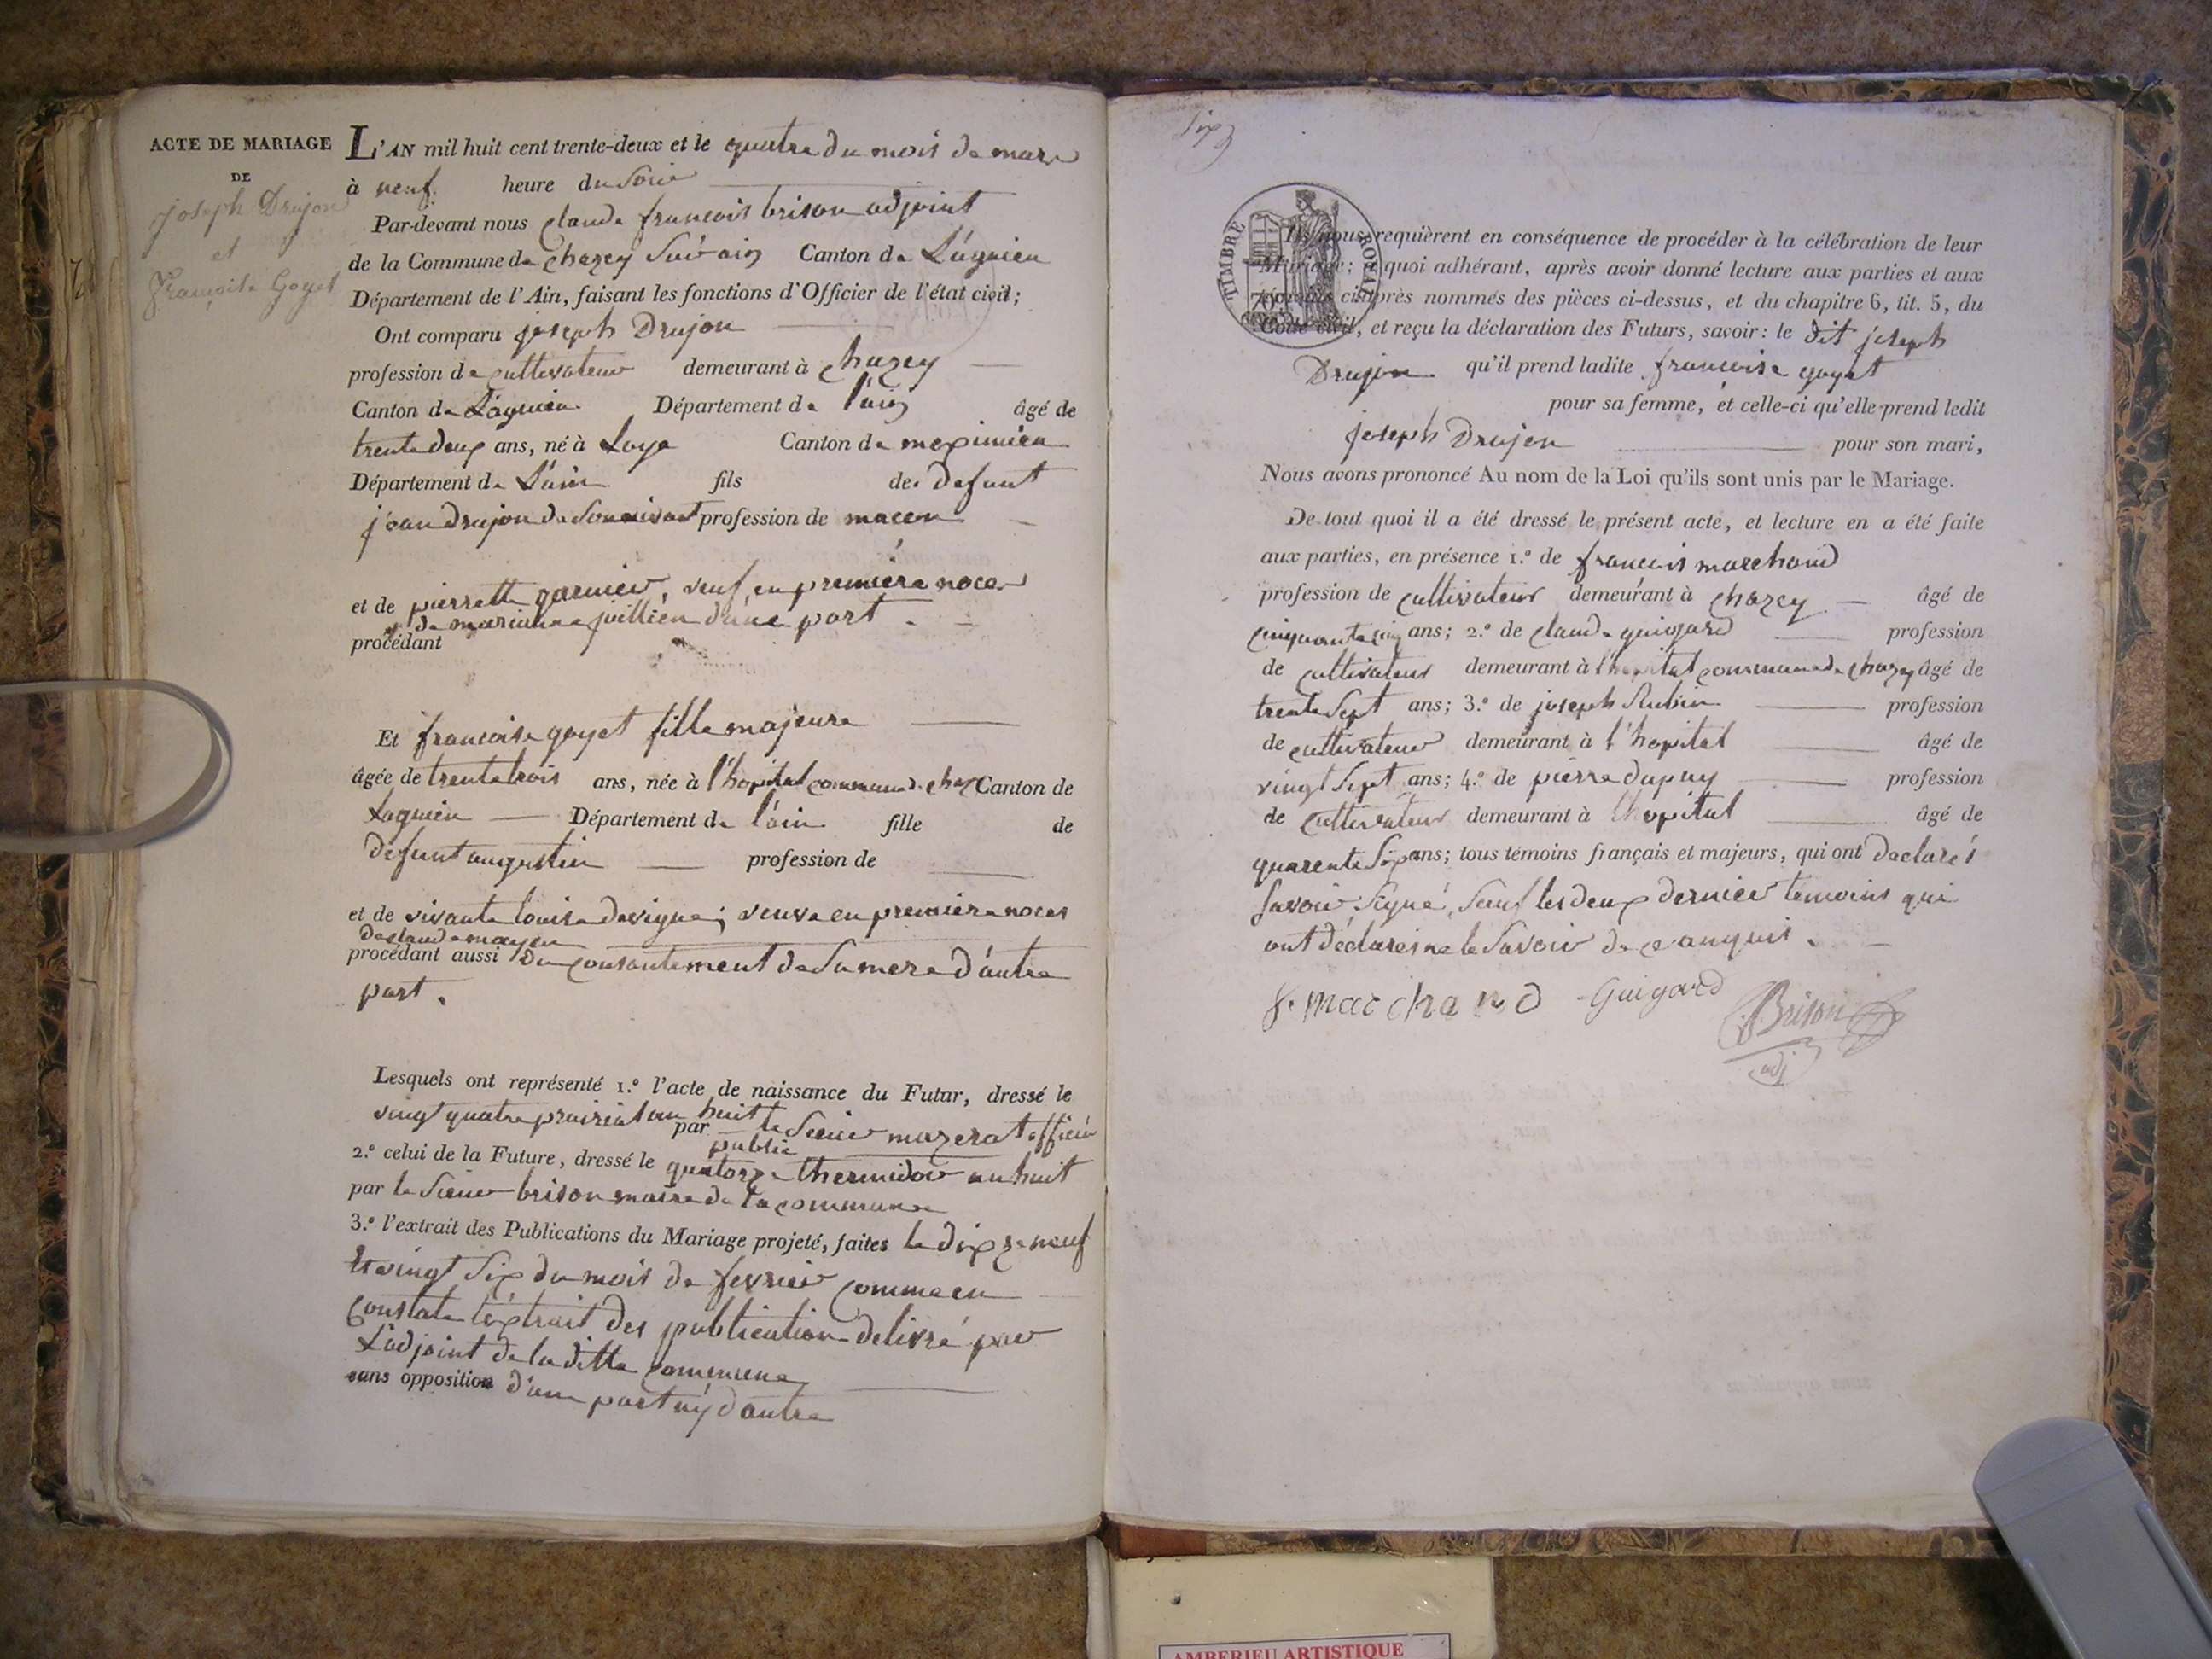 ACTE DE MARIAGE
DE
joseph Drujon
et
françoise Goyet
L'AN mil huit cent trente-deux et le quatre du mois de mars
à neuf heure du soire
Par-devant nous claude francois brison adjoint
de la Commune de chazey suivain Canton de Lagnieu
Département de l'Ain, faisant les fonctions d'Officier de l'état civil;
Ont comparu joseph Drujon
profession de cultivateur demeurant à chazey
Canton de Lagnieu Département de l'ain âgé de
trente deux ans, né à Loye Canton de meximieu
Département de L'ain fils de defunt
jean drujon de son vivant profession de macon
et de pierrette garnier, veuf en premiere noce
de marianne juillien d'une part
procédant
Et francoise goyet fille majeure
âgée de trente trois ans, née à l'hopital commune de chaz Canton de
Lagnieu Département de l'ain fille de
defunt augustin profession de
et de vivante louise devigne; veuve en premiere noces
de claude mayen
procédant aussi du consentement de sa mere d'autre
part.
Lesquels ont représenté 1.º l'acte de naissance du Futur, dressé le
vingt quatre prairial an huit
par le sieur mazerat officier
public
2.º celui de la Future, dressé le quatorze thermidor an huit
par le sieur brison maire de la commune
3.º l'extrait des Publications du Mariage projeté, faites le dix neuf
et vingt six du mois de fevrier comme en
constate l'extrait des publication delivré par
L'adjoint de la ditte commune
sans opposition d'une part ny d'autre
six
TIMBRE ROYAL
Ils nous requièrent en conséquence de procéder à la célébration de leur
Mariage; à quoi adhérant, après avoir donné lecture aux parties et aux
témoins ci-après nommés des pièces ci-dessus, et du chapitre 6, tit. 5, du
Code civil, et reçu la déclaration des Futurs, savoir: le dit joseph
Drujon qu'il prend ladite francoise goyet
pour sa femme, et celle-ci qu'elle prend ledit
joseph Drujon pour son mari,
Nous avons prononcé Au nom de la Loi qu'ils sont unis par le Mariage.
De tout quoi il a été dressé le présent acte, et lecture en a été faite
aux parties, en présence 1.º de francois marchand
profession de cultivateur demeurant à chazey âgé de
cinquante cinq ans; 2.º de claude guigard profession
de cultivateur demeurant à l'hopital commune de chazey âgé de
trente sept ans; 3.º de joseph Rubin profession
de cultivateur demeurant à l'hopital âgé de
vingt sept ans; 4.º de pierre dupuy profession
de cultivateur demeurant à l'hopital âgé de
quarente six ans; tous témoins français et majeurs, qui ont declarés
savoir signé, sauf les deux dernier temoins qui
ont déclarés ne le savoir de ce anquis.
f. marchand Guigard Brison
adj
AMBERIEU ARTISTIQUE